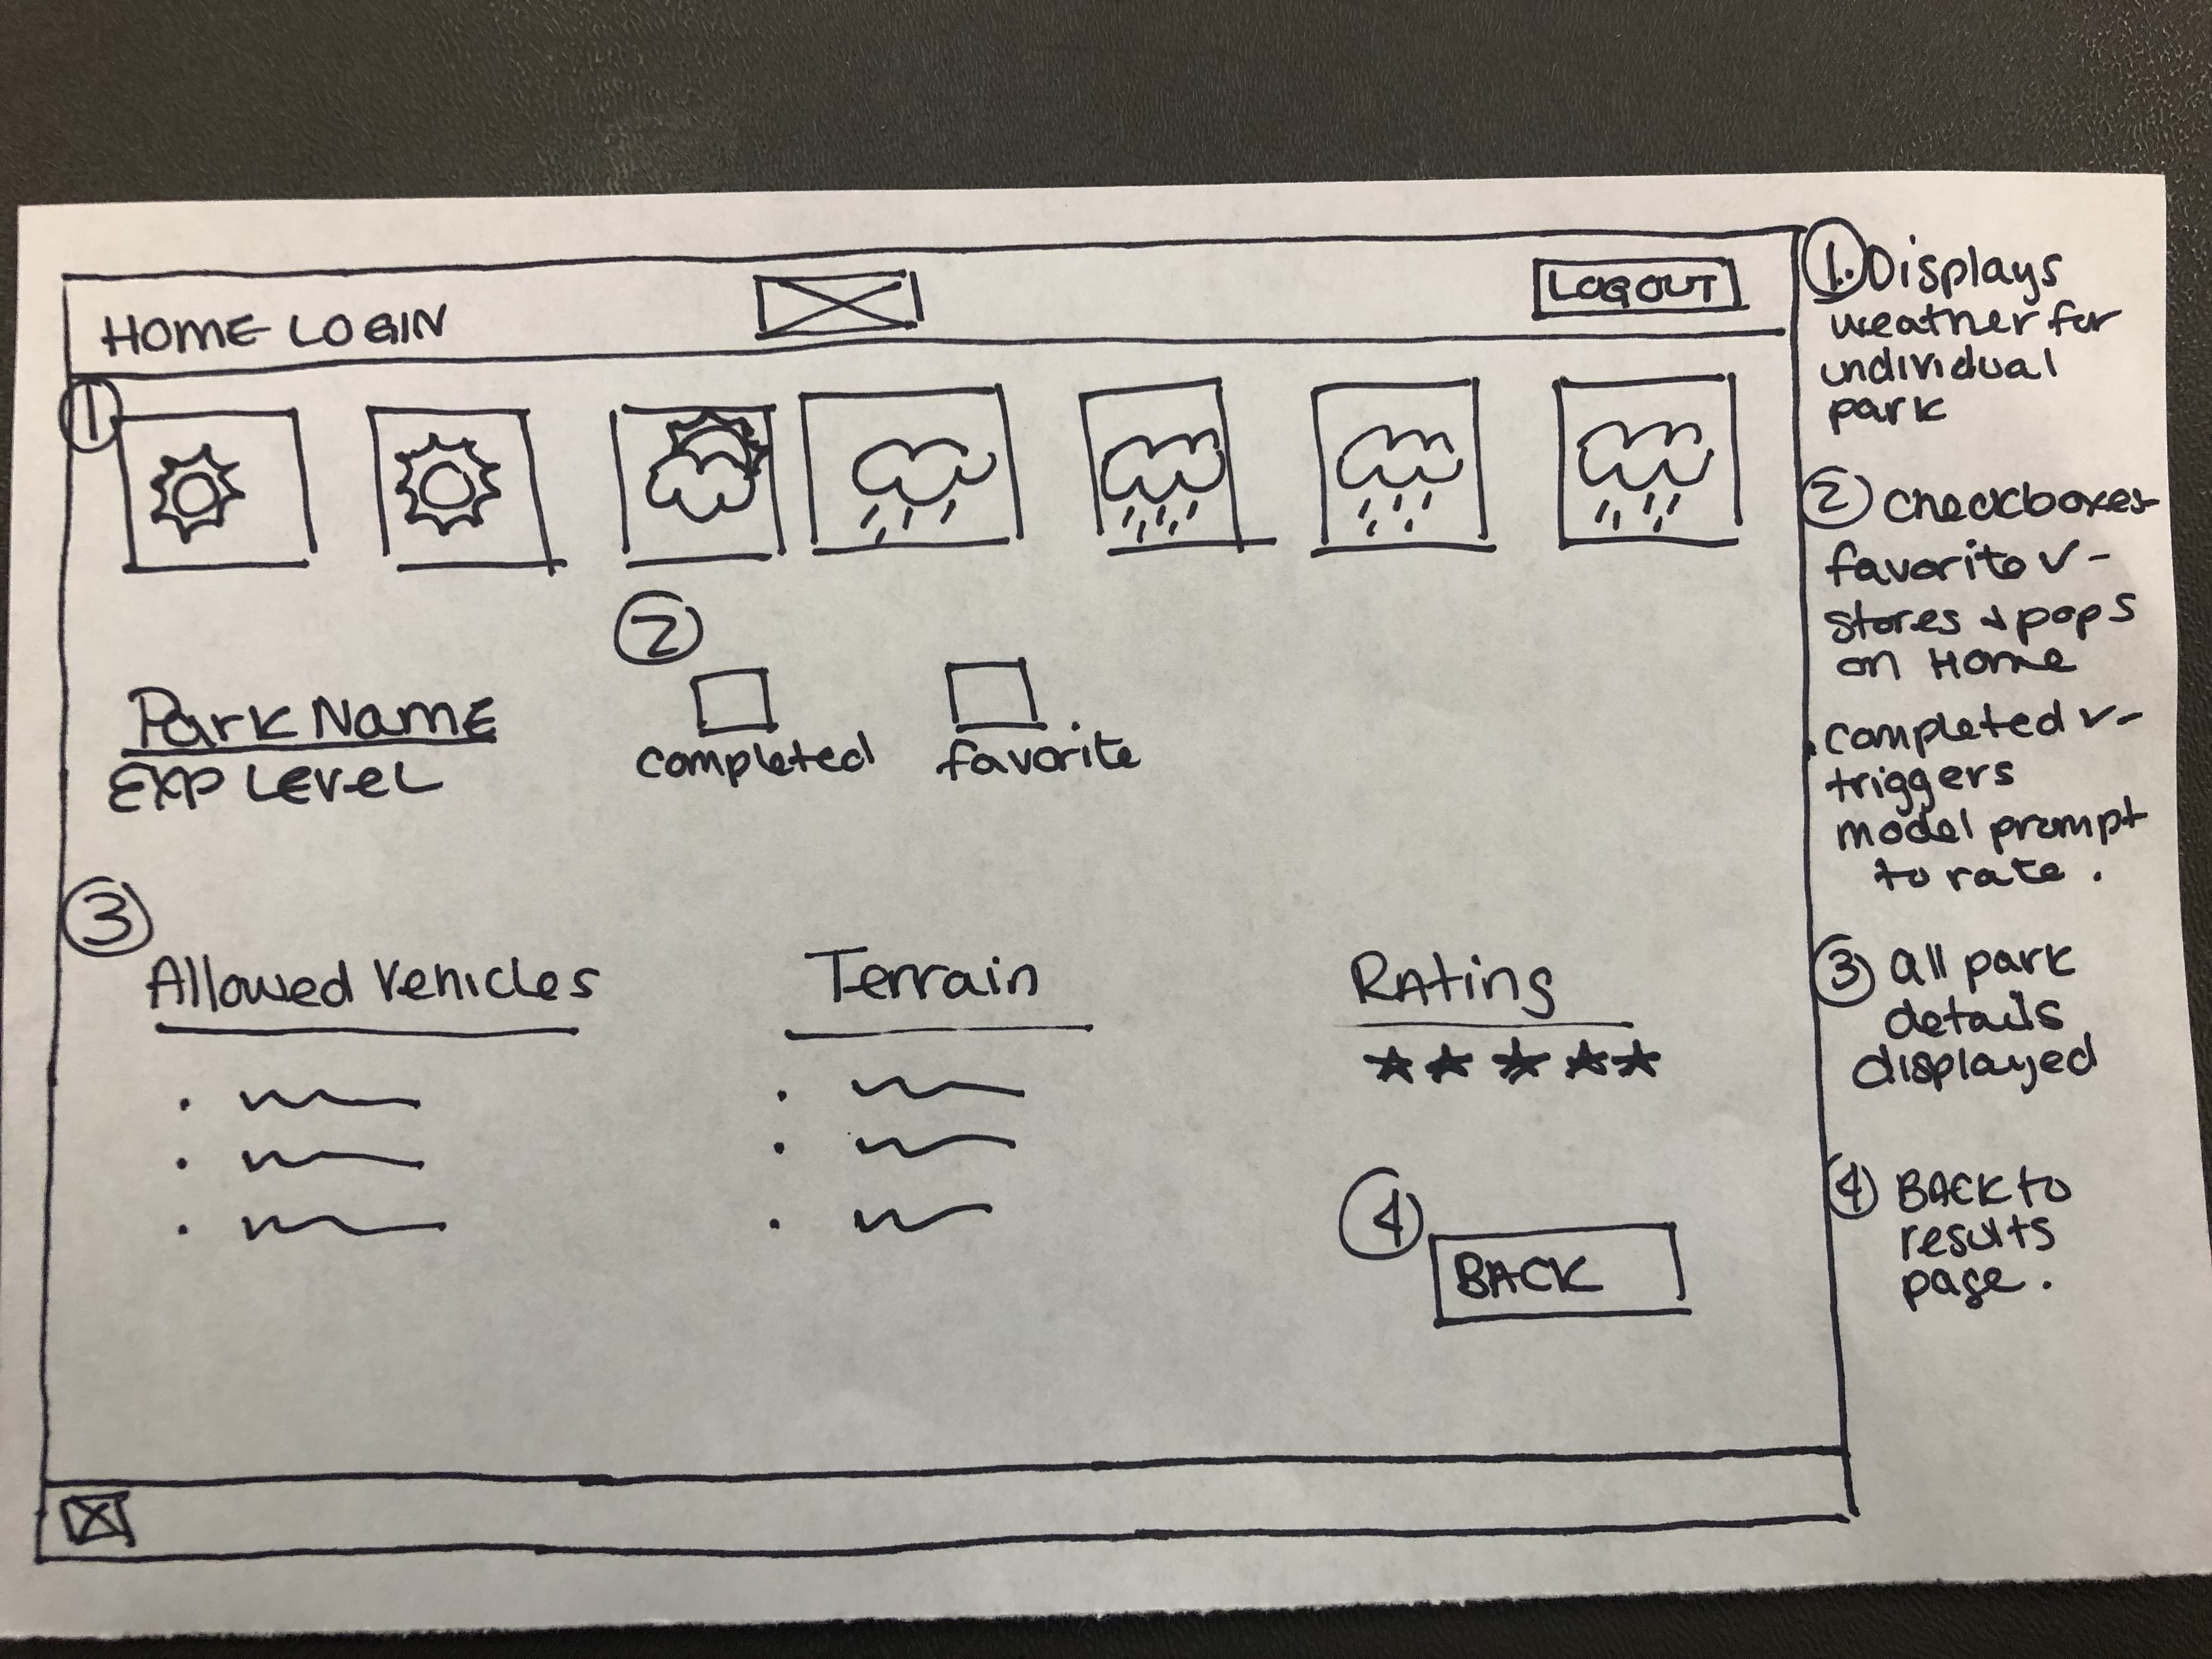 HOME LOGIN
LOGOUT
1
2
Park Name
EXP LEVEL
completed
favorite
3
Allowed Vehicles
Terrain
Rating
4
BACK
1. Displays
weather for
individual
park
2 Checkboxes
favorite ✓-
stores + pops
on Home
. completed ✓-
triggers
model prompt
to rate.
3 all park
details
displayed
4 BACK to
results
page.